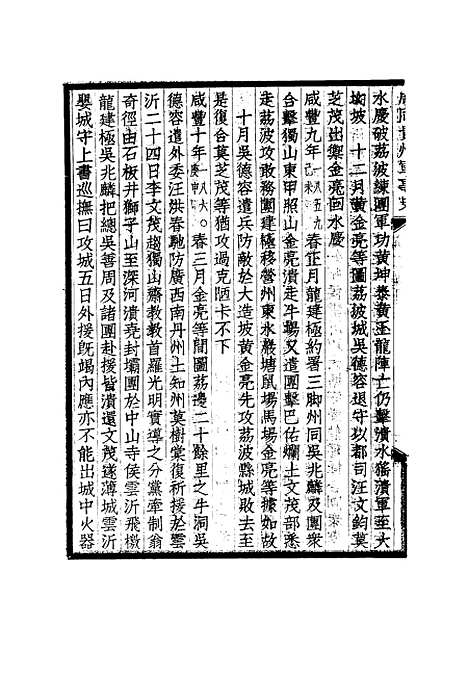 水慶破荔波練團軍功黃坤泰黃玉龍陣亡仍擊潰水猺潰軍至大
坳坡 十二月黃金亮等圖荔波城吳德容退守以都司汪文鈞莫
芝茂出禦金亮回水慶
咸豐九年己未一八五九春正月龍建極約署三脚州同吳兆麟及團衆
合擊獨山東甲照山金亮潰走牛場又遣團擊巴佑爛土文茂部悉
走荔波攻敢務團建極移營州東水巖塘鼠場馬場金亮等據如故
十月吳德容遣兵防敵於大造坡黃金亮先攻荔波縣城敗去至
是復合莫芝茂等猶攻過克陋卡不下
咸豐十年庚申一八六〇春三月金亮等間圖荔邊二十餘里之牛洞吳
德容遣外委汪洪春馳防廣西南丹州土知州莫樹棠復祈援於雲
沂二十四日李文茂趨獨山齋教教首羅光明實導之分黨牽制翁
奇徑由石板井獅子山至深河潰堯封壩團於中山寺侯雲沂飛檄
龍建極吳兆麟把總吳善周及諸團赴援皆潰還文茂遂薄城雲沂
嬰城守上書巡撫曰攻城五日外援旣竭內應亦不能出城中火器